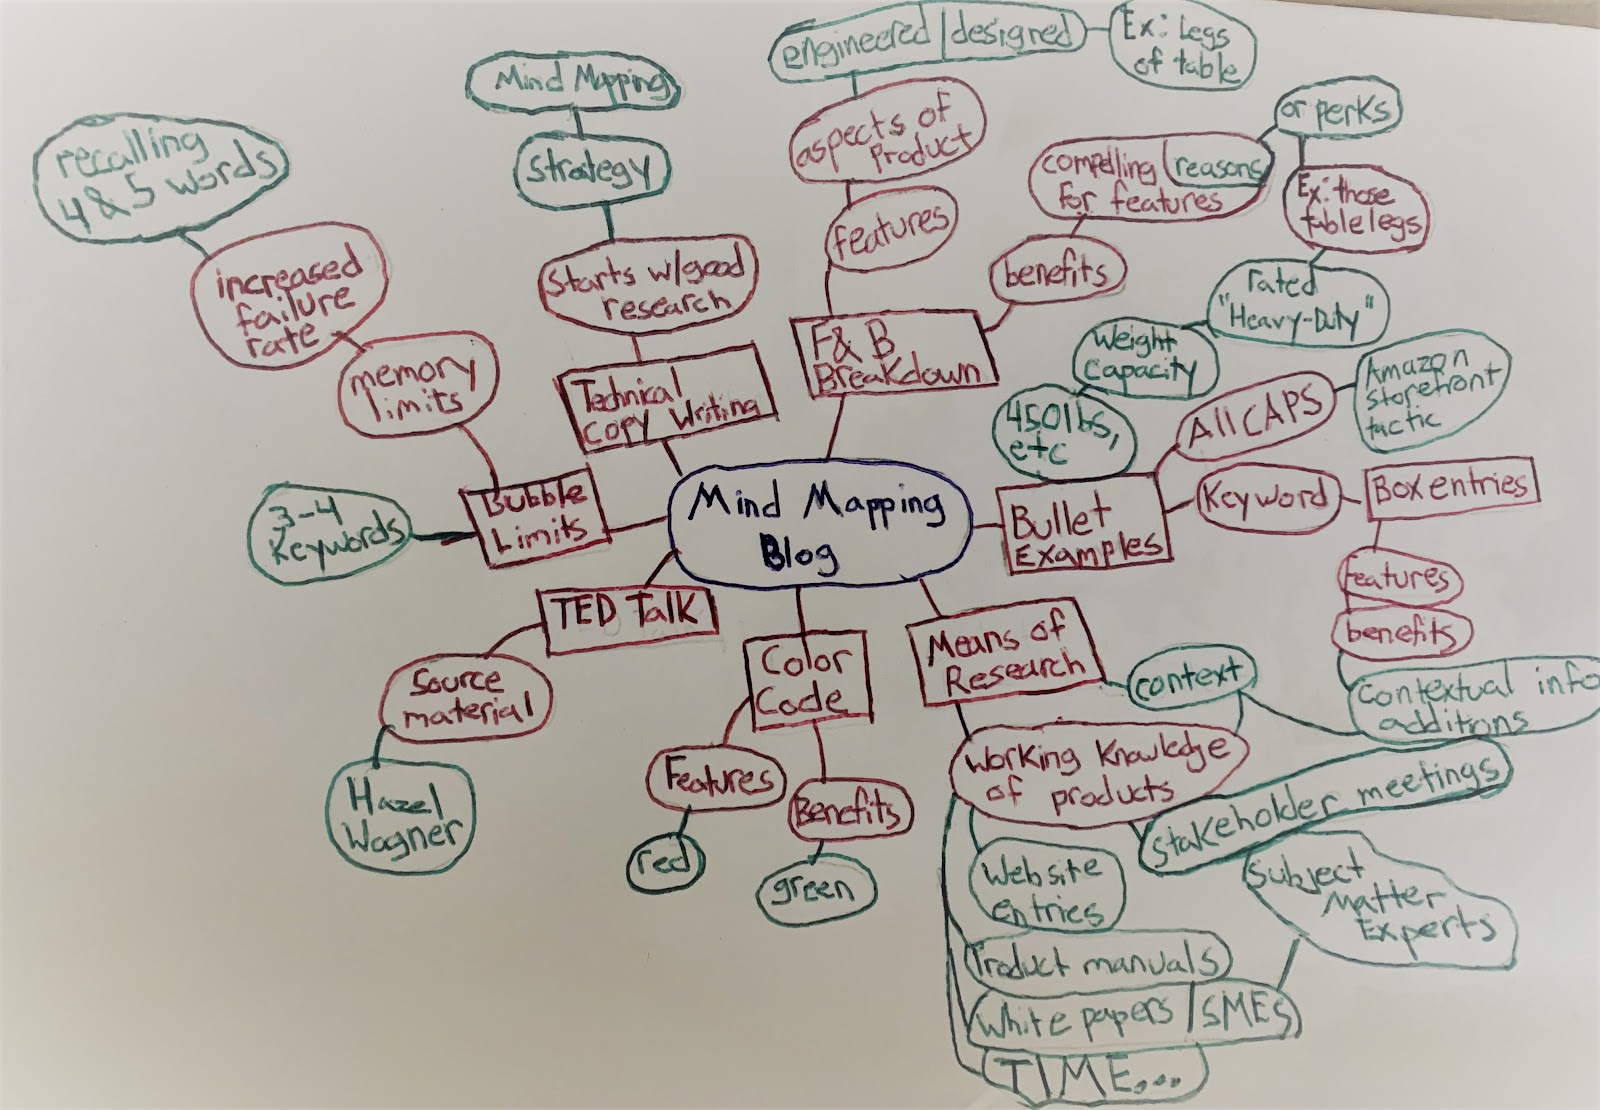 engineered / designed
Ex: Legs
of table
Mind Mapping
Strategy
Starts w/good
research
Technical
Copy Writing
recalling
4 & 5 words
increased
failure
rate
memory
limits
Bubble
Limits
3-4
Keywords
aspects of
Product
features
F & B
Breakdown
benefits
compelling reasons
for features
or perks
Ex: those
table legs
rated
"Heavy-Duty"
Weight
Capacity
450lbs,
etc
All CAPS
Amazon
Storefront
tactic
Mind Mapping
Blog
Bullet
Examples
Keyword
Box entries
features
benefits
Contextual info
additions
TED Talk
Source
material
Hazel
Wagner
Color
Code
Features
red
Benefits
green
Means of
Research
context
Working Knowledge
of products
Stakeholder meetings
Website
entries
Product manuals
White papers / SMEs
Subject
Matter
Experts
TIME...